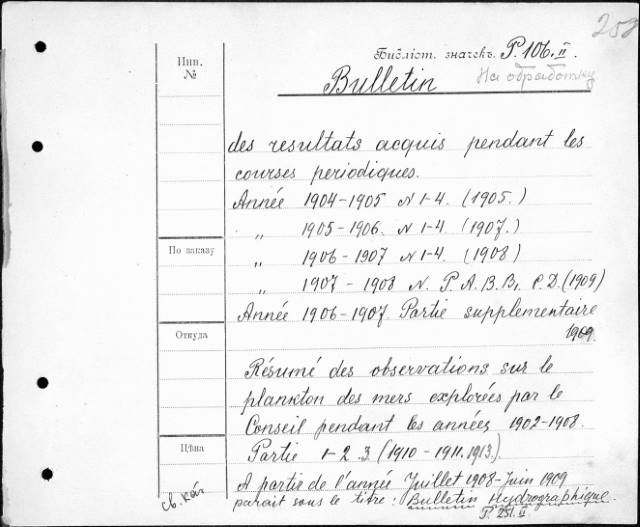 252
Библіот. значекъ. P. 106. II.
Инв. №
Bulletin
На обработку
des resultats acquis pendant les
courses periodiques.
Année 1904-1905 N 1-4. (1905.)
„ 1905-1906. N 1-4 (1907.)
„ 1906-1907 N 1-4. (1908)
По заказу
„ 1907-1908 N. P. A. B. B1. C. D. (1909)
Année 1906-1907. Partie supplementaire
1909.
Откуда
Résumé des observations sur le
plankton des mers explorées par le
Conseil pendant les années 1902-1908.
Цѣна
Partie 1-2. 3 (1910-1911. 1913.)
A partir de l'année Juillet 1908-Juin 1909
parait sous le titre: Bulletin Hydrographique.
P 251. II